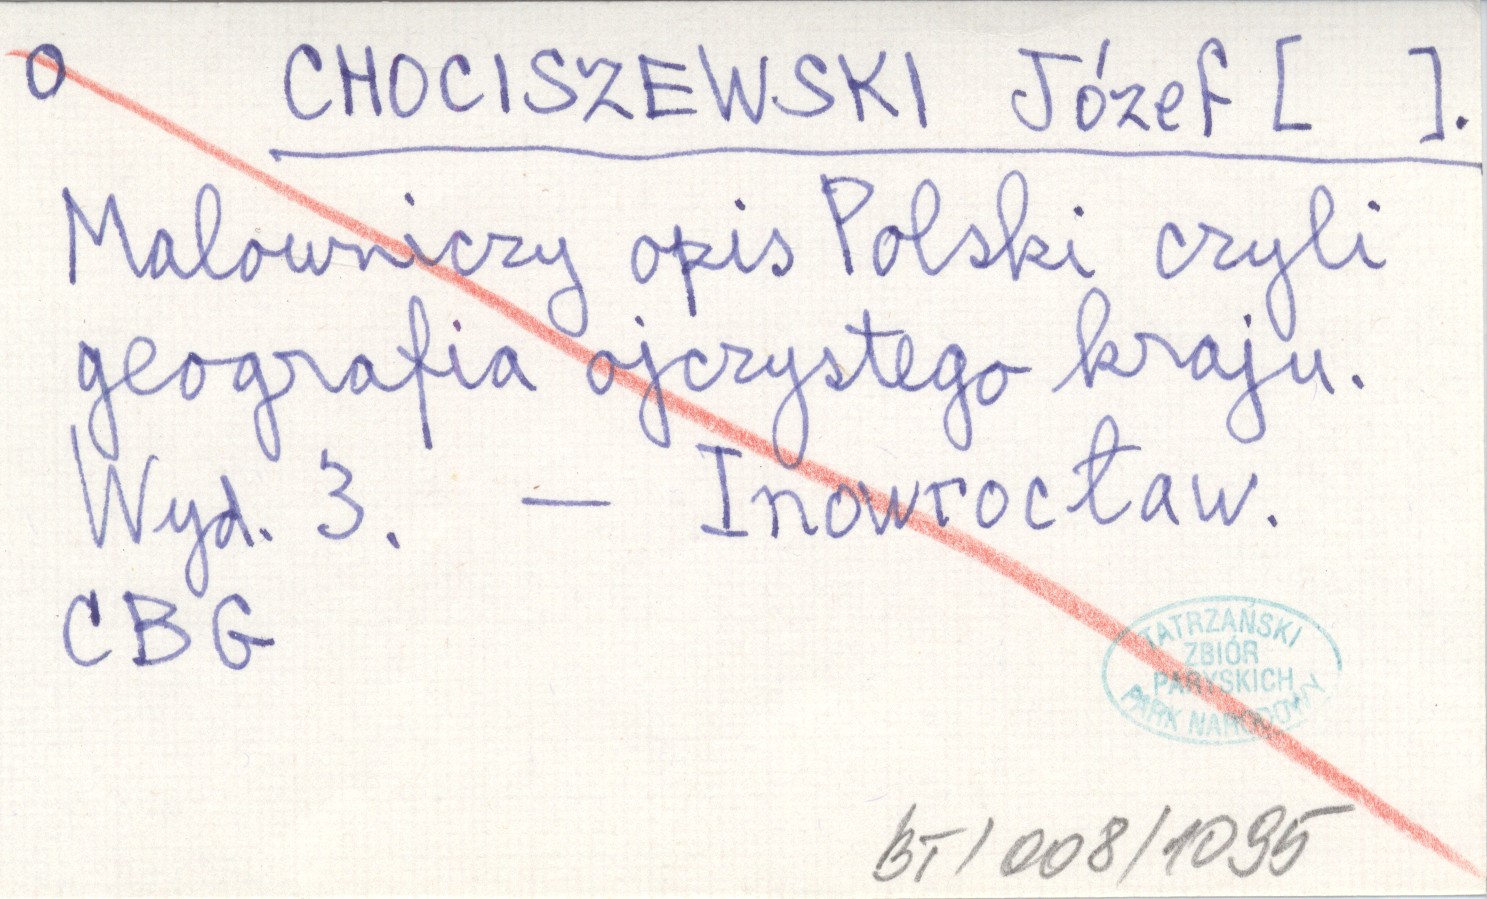 o CHOCISZEWSKI Józef [ ].
Malowniczy opis Polski czyli
geografia ojczystego kraju.
Wyd. 3. — Inowrocław.
CBG
TATRZAŃSKI
ZBIÓR
PARYSKICH
PARK NARODOWY
BT/008/1095